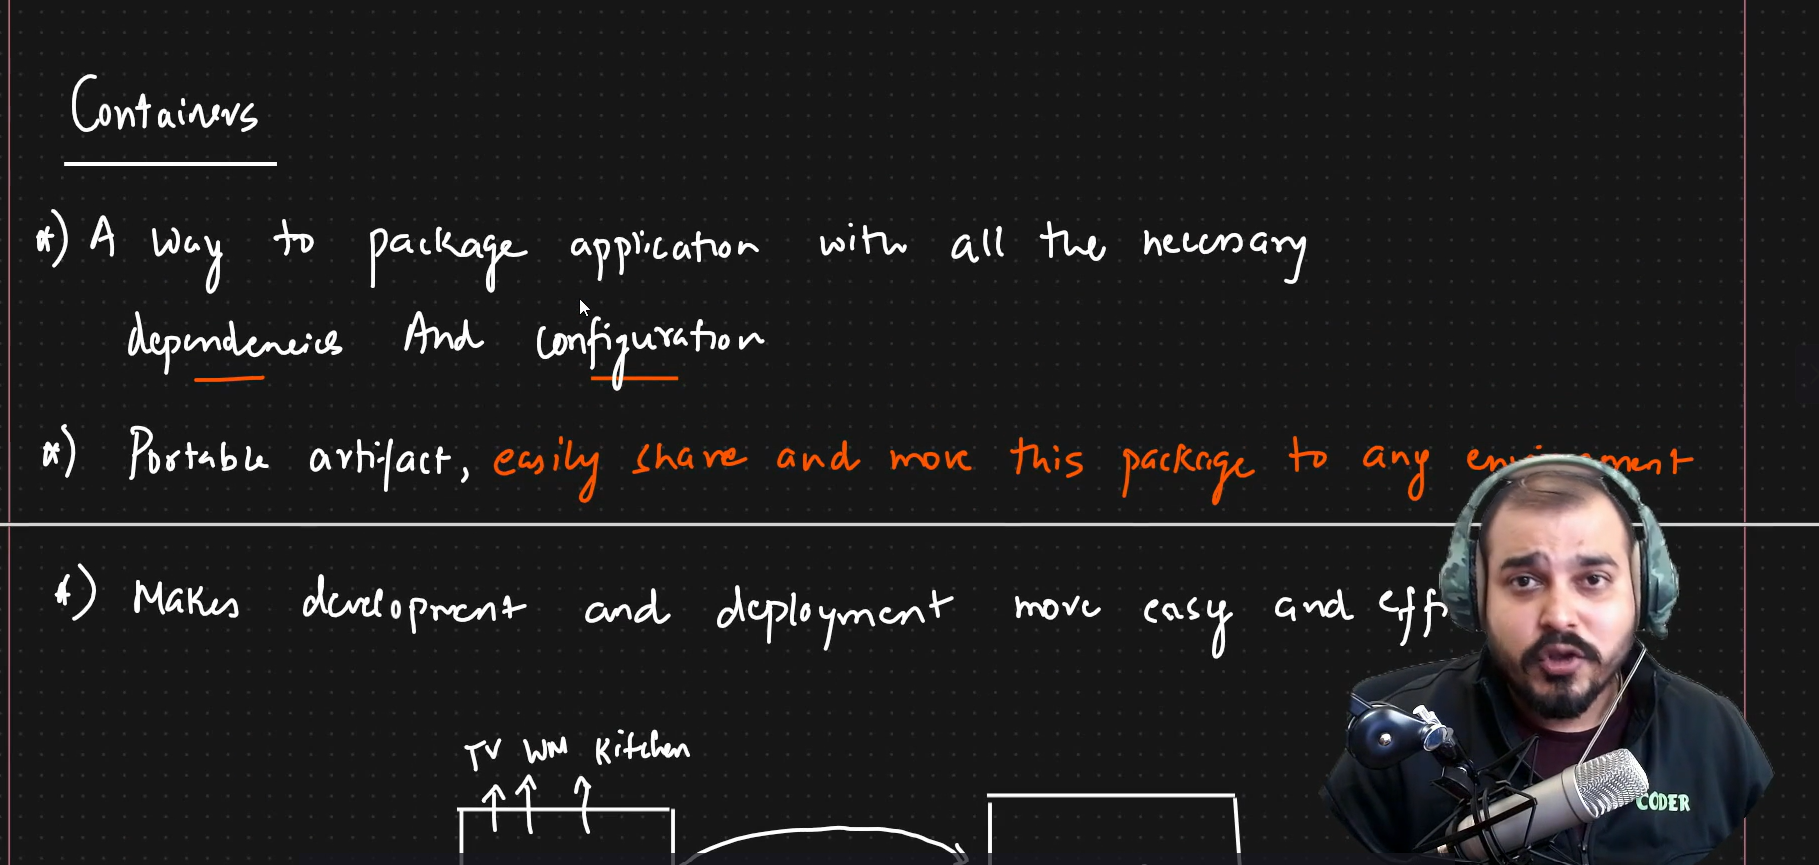 Containers
*) A Way to package application with all the necessary
dependencies And configuration
*) Portable artifact, easily share and move this package to any
*) Makes development and deployment more easy and
TV WM Kitchen
CODER